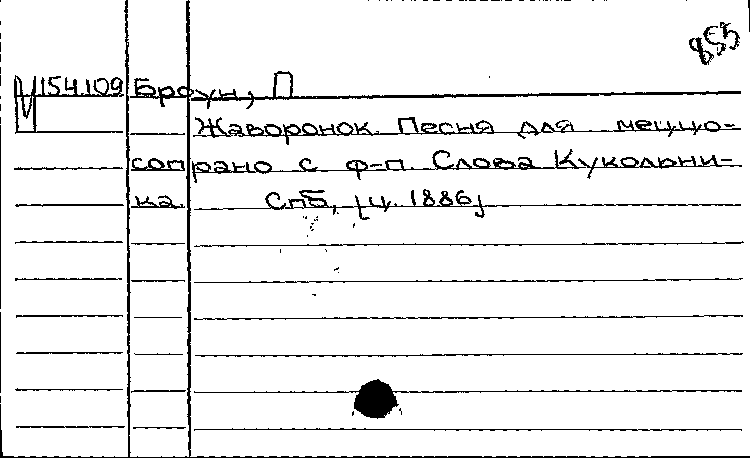 855
М154.109 Броун, П
Жаворонок. Песня для меццо-
сопрано с ф-п. Слова Кукольни-
ка. Спб, [ц. 1886]